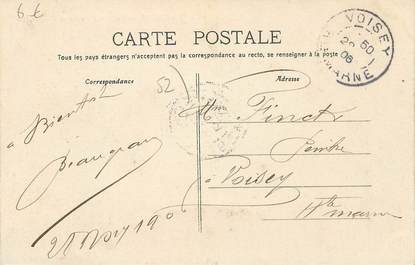 6 €
CARTE POSTALE
Tous les pays étrangers n'acceptent pas la correspondance au recto, se renseigner à la poste
Correspondance
Adresse
VOISEY
MARNE
52
à Bientôt
Mme Finck
Peintre
à Voisey
Hte marne